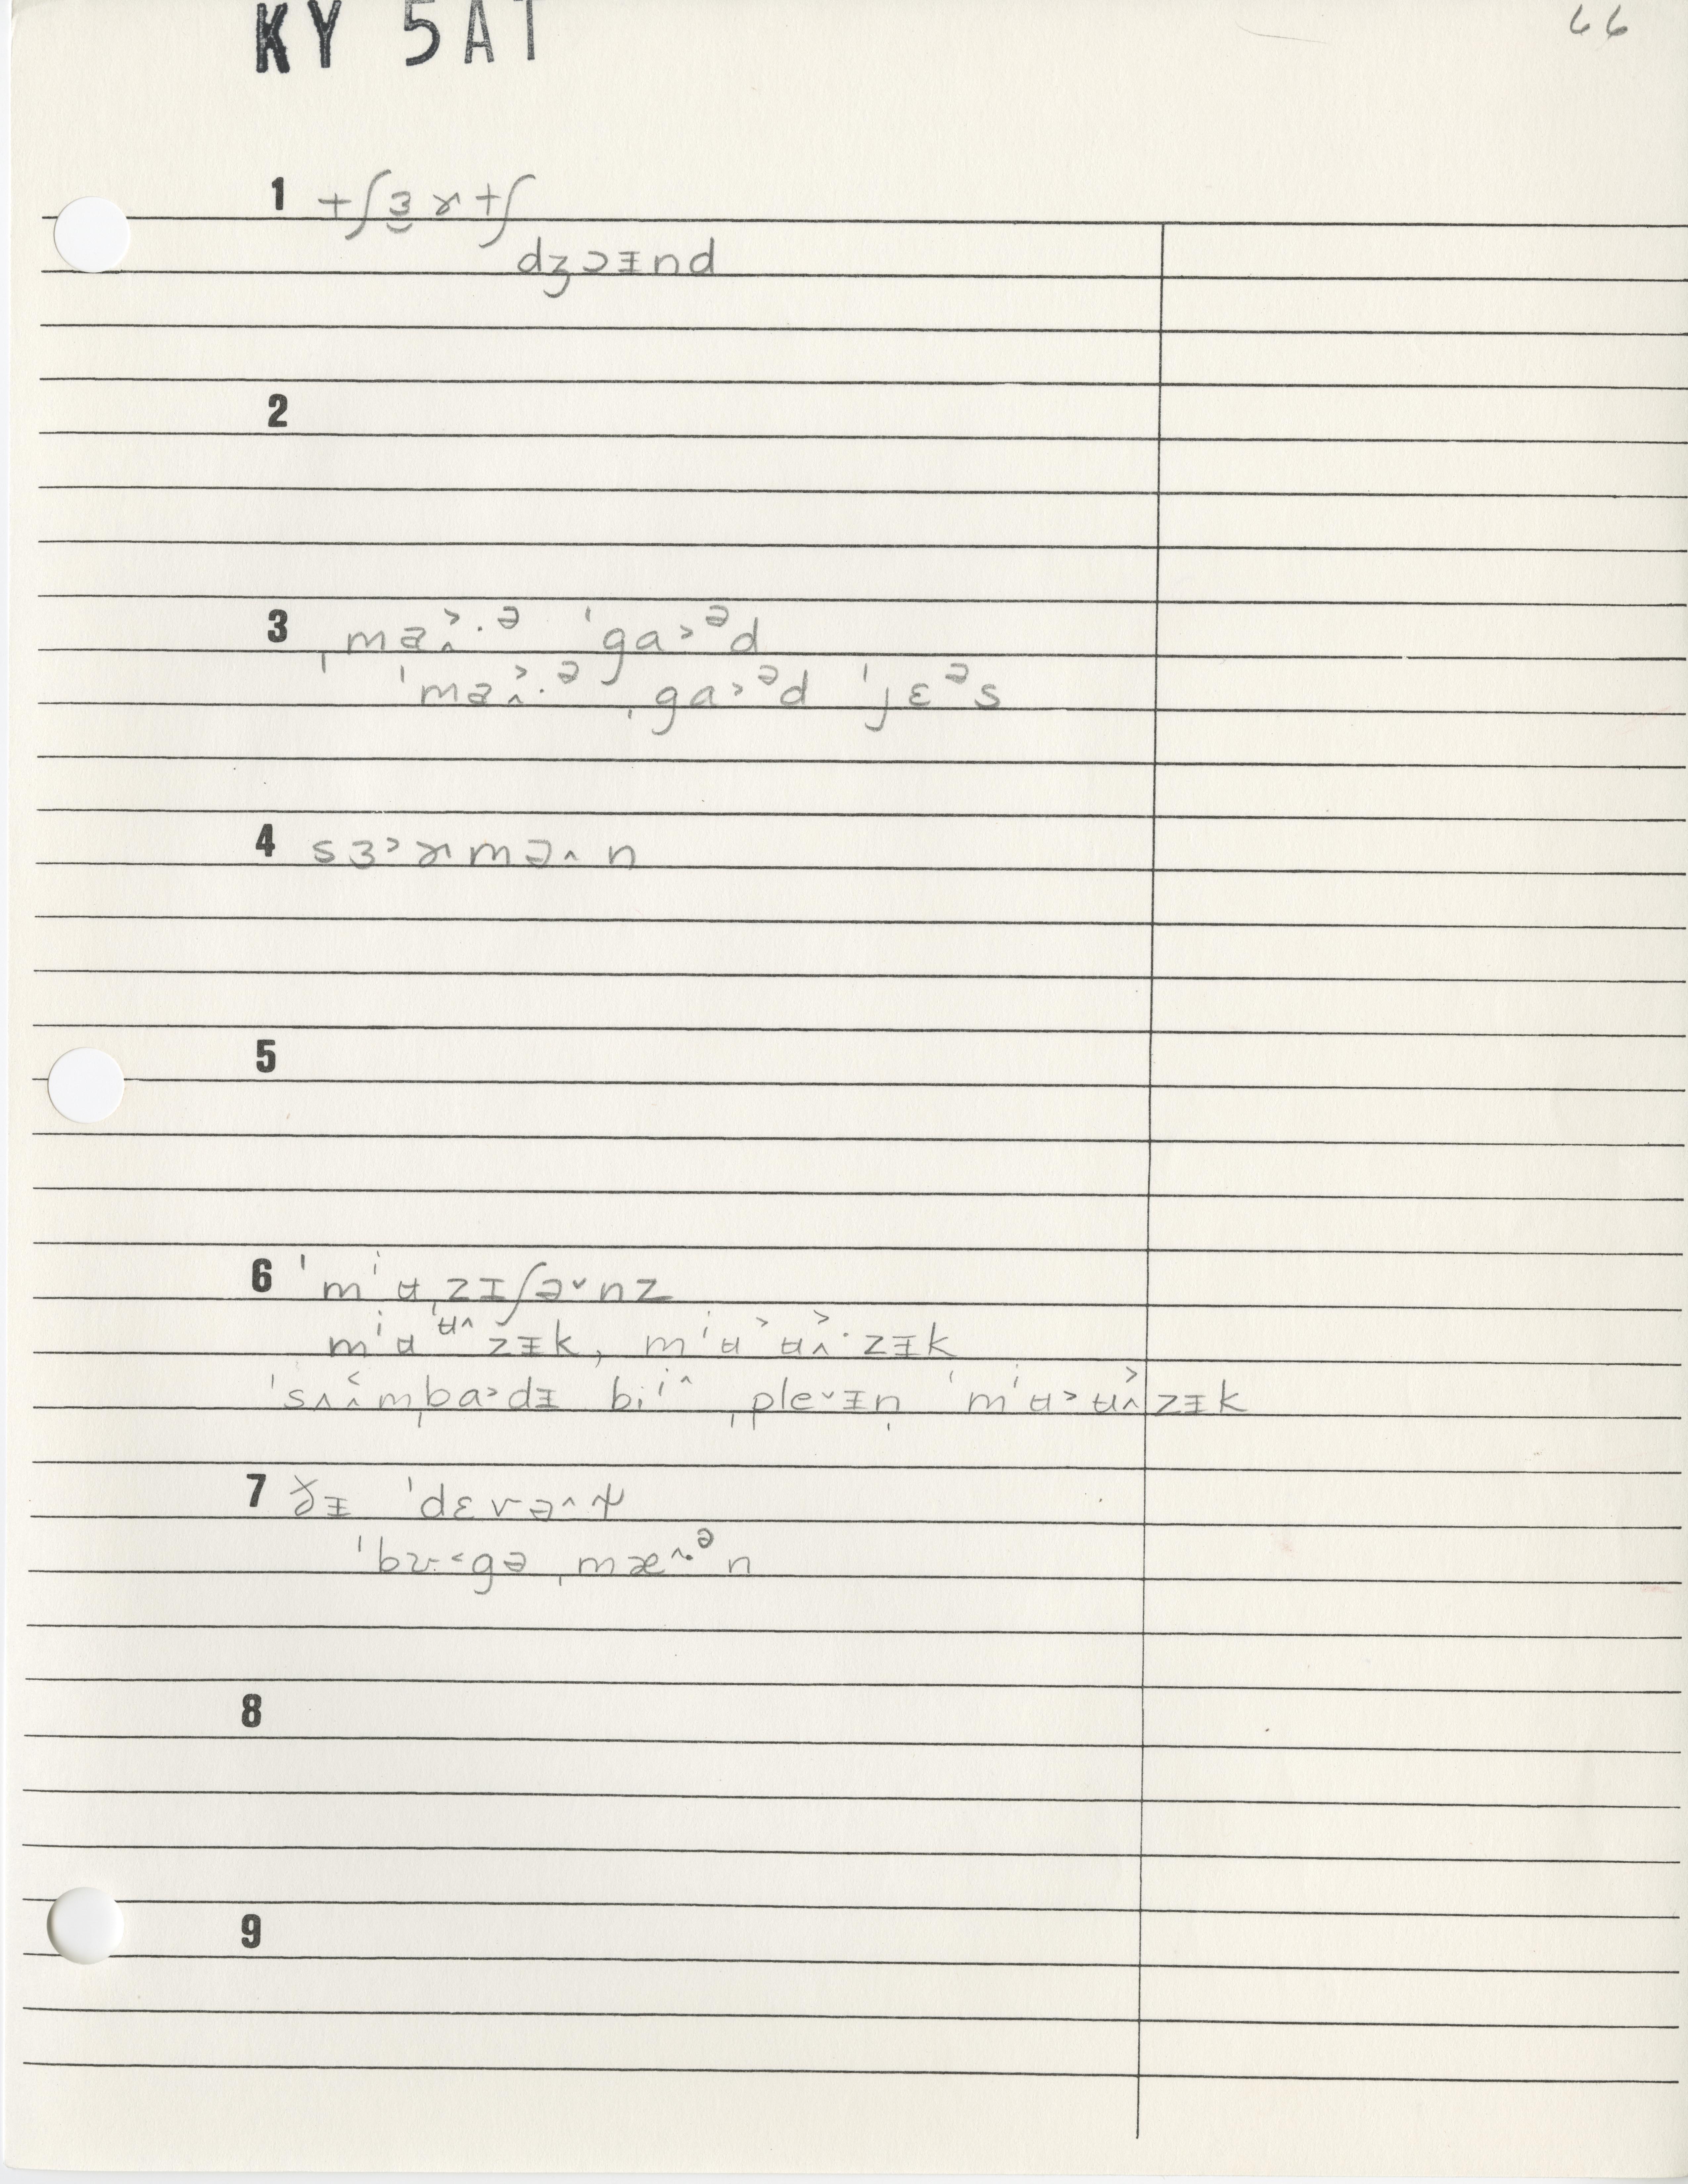 KY 5AT
66
1 tʃɜ̮ɤtʃ
dʒɔɪnd
2
3 ˌmɐ˰˃·ᵊ ˈga˃ᵊd
ˈmɐ˰˃·ᵊ ˌga˃ᵊd ˈjɛᵊs
4 sɜ˃ɤmə˄n
5
6 ˈmⁱʉˌzɪʃə˅nz
mⁱʉᶶ˄zɪk, mⁱʉ˃ʉ˰˃·zɪk
ˈsʌ˰˂mˌba˃dɪ biⁱ˄ ˌple˅ɪn̩ ˈmⁱʉ˃ʉ˰˃zɪk
7 ðɪ ˈdɛvə˄ɫ
ˈbʊ˂gəˌmæ˄·ᵊn
8
9